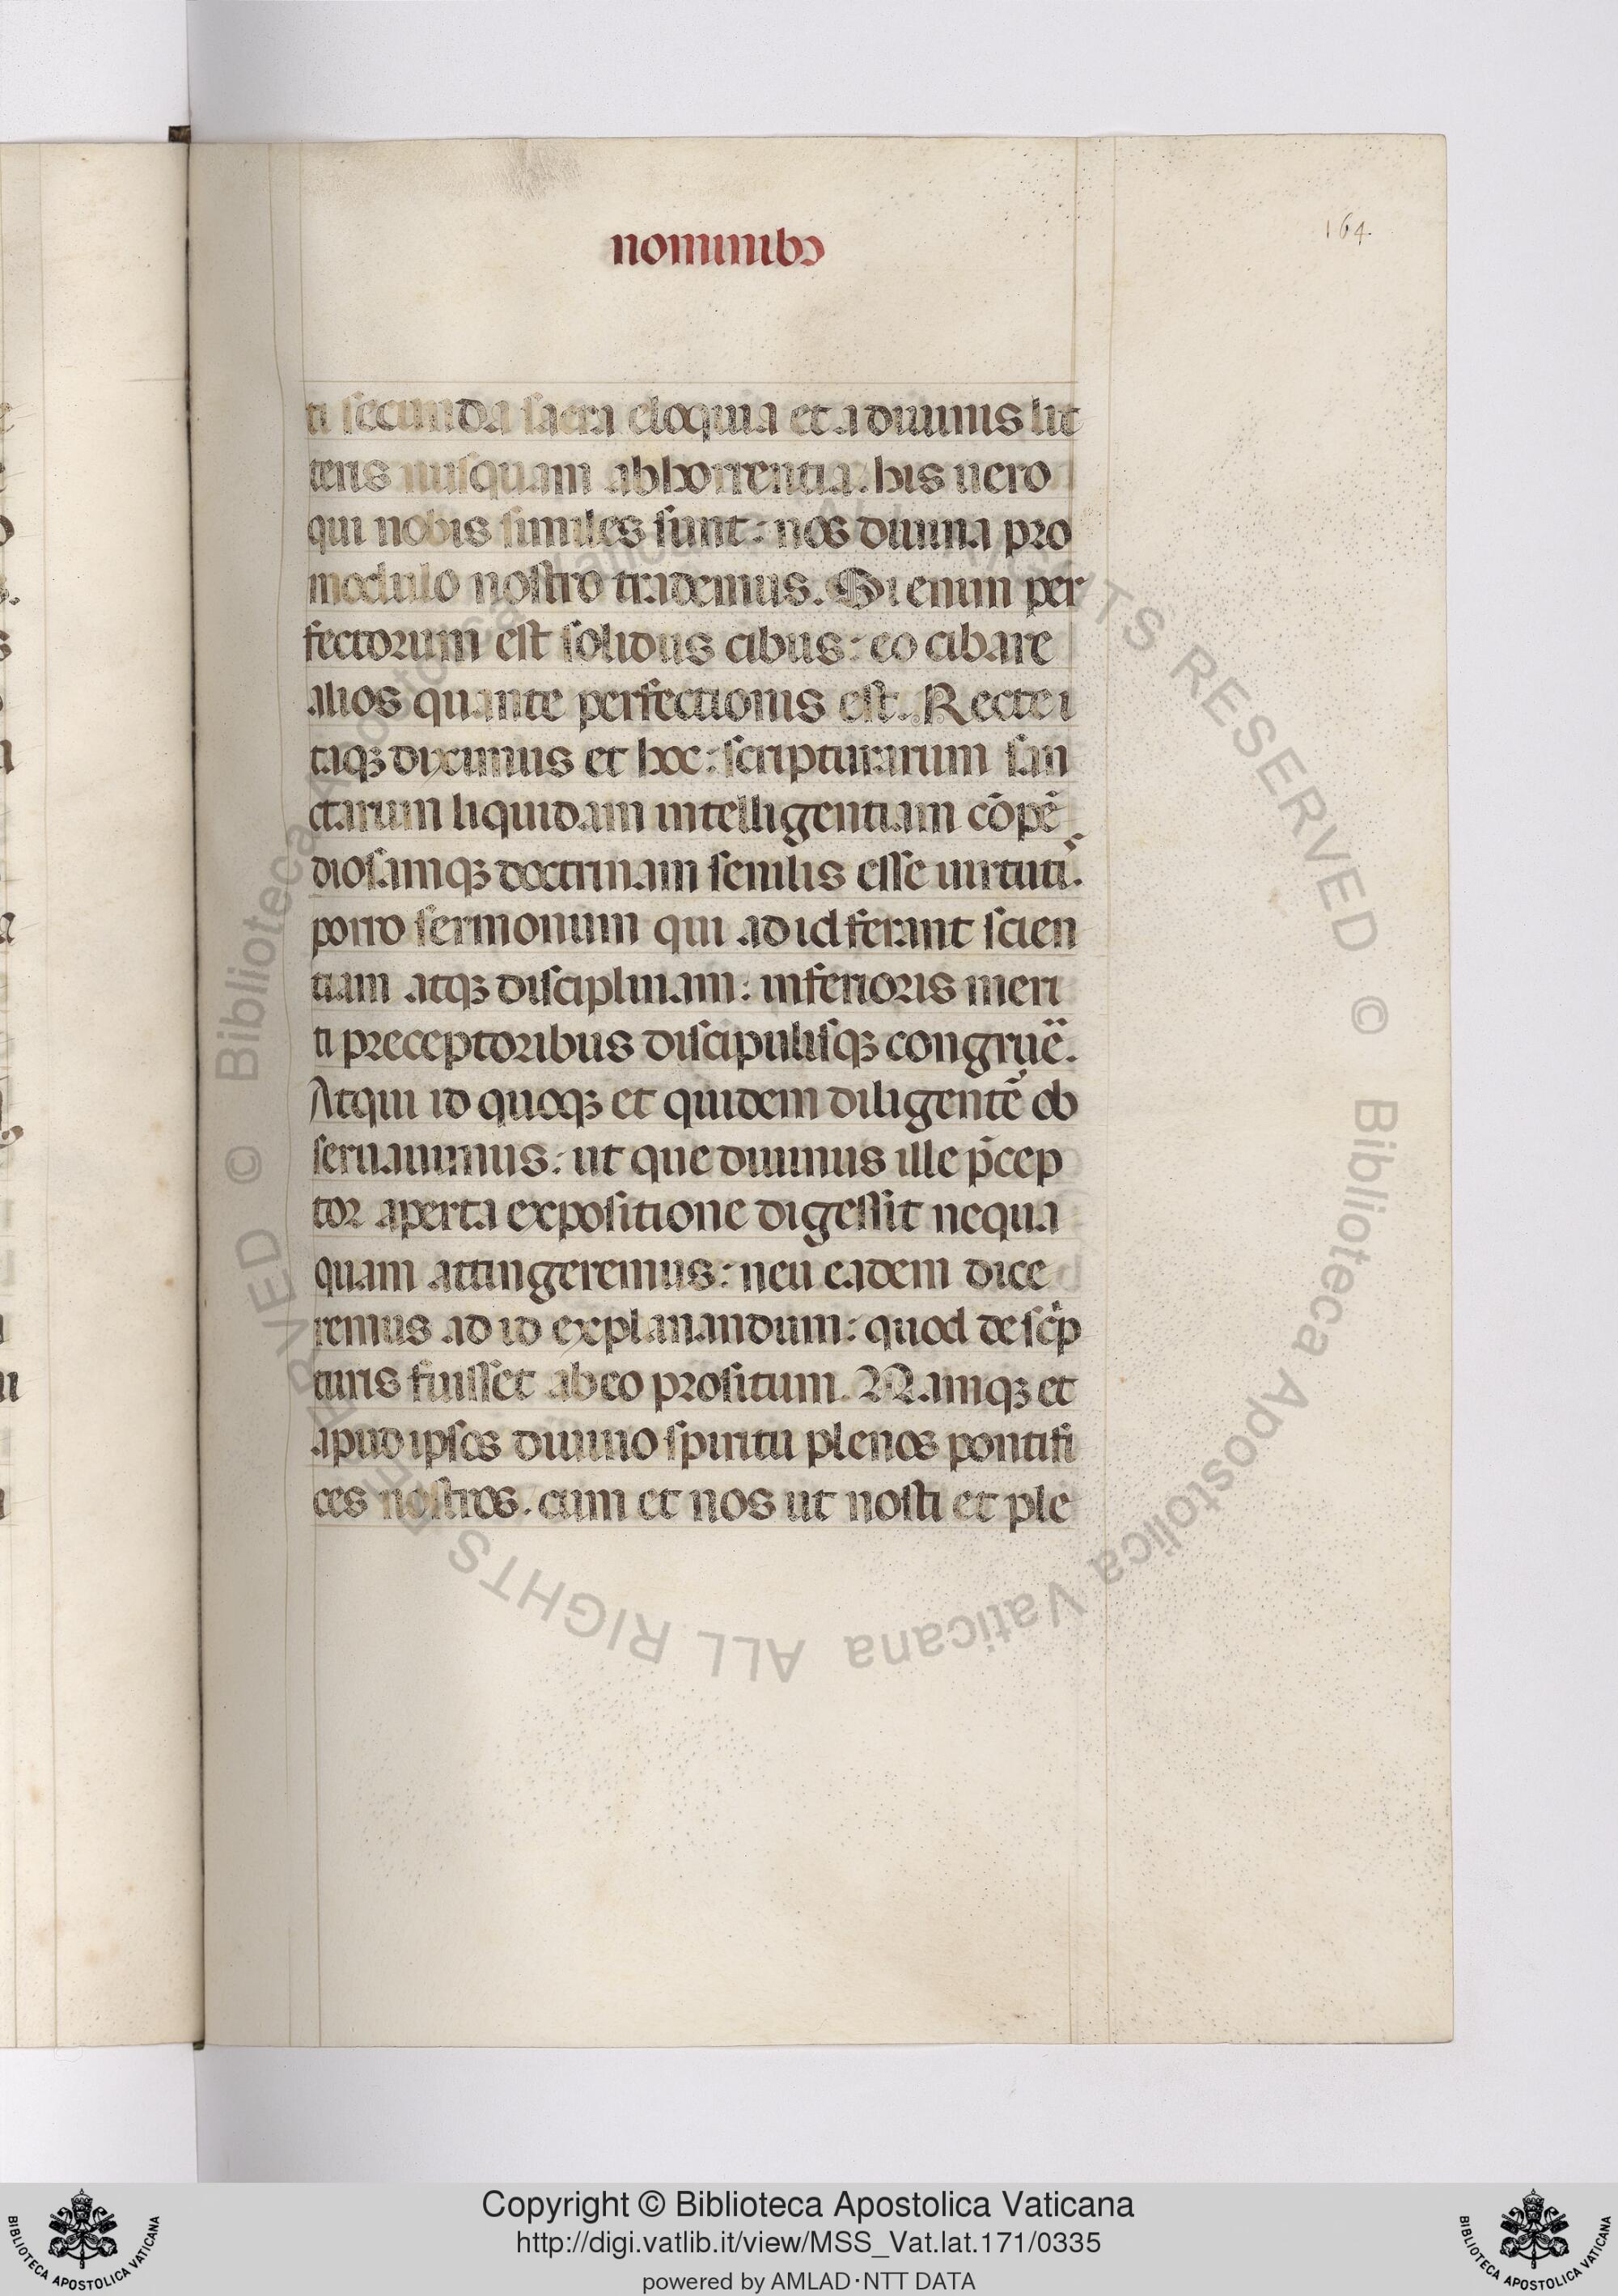 nominibꝰ
164.
ti secunda sacra eloquia et a diuinis lit
teris nusquam abhorrentia. his uero
qui nobis similes sunt: nos diuina pro
modulo nostro trademus. Si enim per
fectorum est solidus cibus: eo cibare
alios quante perfectionis est. Recte i
taqꝫ diximus et hoc: scripturarum san
ctarum liquidam intelligentiam cōpē
diosamqꝫ doctrinam senilis esse uirtutiˢ.
porro sermonum qui ad id ferant scien
tiam atqꝫ disciplinam: inferioris meri
ti preceptoribus discipulisqꝫ congruē̈.
Atqui id quoqꝫ et quidem diligentē ob
seruauimus: ut que diuinus ille p̄cep
tor aperta expositione digessit nequa
quam attingeremus: neu eadem dice
remus ad id explanandum: quod de scͥp
turis fuisset ab eo prositum. Namqꝫ et
apud ipsos diuino spiritu plenos pontifi
ces nostros. cum et nos ut nosti et ple
© Biblioteca Apostolica Vaticana ALL RIGHTS RESERVED © Biblioteca Apostolica Vaticana ALL RIGHTS RESERVED
Copyright © Biblioteca Apostolica Vaticana
http://digi.vatlib.it/view/MSS_Vat.lat.171/0335
powered by AMLAD·NTT DATA
BIBLIOTECA APOSTOLICA VATICANA
BIBLIOTECA APOSTOLICA VATICANA